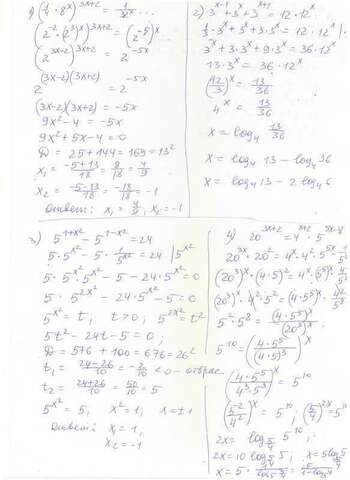 1) (1/4 · 8^x)^(3x+2) = 1/32^x ...
(2^-2 · (2^3)^x)^(3x+2) = (2^-5)^x
(2^(3x-2))^(3x+2) = 2^(-5x)
2^((3x-2)(3x+2)) = 2^(-5x)
(3x-2)(3x+2) = -5x
9x² - 4 = -5x
9x² + 5x - 4 = 0
D = 25 + 144 = 169 = 13²
x₁ = (-5+13)/18 = 8/18 = 4/9
x₂ = (-5-13)/18 = -18/18 = -1
Ответ: x₁ = 4/9, x₂ = -1
2) 3^(x-1) + 3^x + 3^(x+1) = 12 · 12^x
1/3 · 3^x + 3^x + 3^x · 3 = 12 · 12^x
3^x + 3 · 3^x + 9 · 3^x = 36 · 12^x
13 · 3^x = 36 · 12^x
(12/3)^x = 13/36
4^x = 13/36
x = log₄ 13/36
x = log₄ 13 - log₄ 36
x = log₄ 13 - 2 log₄ 6
3) 5^(1+x²) - 5^(1-x²) = 24
5 · 5^(x²) - 5 · 1/5^(x²) = 24 | 5^(x²)
5 · 5^(x²) · 5^(x²) - 5 - 24 · 5^(x²) = 0
5 · 5^(2x²) - 24 · 5^(x²) - 5 = 0
5^(x²) = t, t > 0, 5^(2x²) = t²
5t² - 24t - 5 = 0;
D = 576 + 100 = 676 = 26²
t₁ = (24-26)/10 = -2/10 < 0 - отбрас.
t₂ = (24+26)/10 = 50/10 = 5
5^(x²) = 5, x² = 1; x = ±1
Ответ: x₁ = 1,
x₂ = -1
4) 20^(3x+2) = 4^x · 5^(5x-8)
20^(3x) · 20² = 4^x · 5^(5x) · 1/5^8
5² · 5^8 =
5^10 = (4 · 5^5 / (4·5)³)^x
(4 · 5^5 / 4³ · 5³)^x = 5^10
(5²/4²)^x = 5^10, (5/4)^(2x) = 5^10
2x = log_(5/4) 5^10;